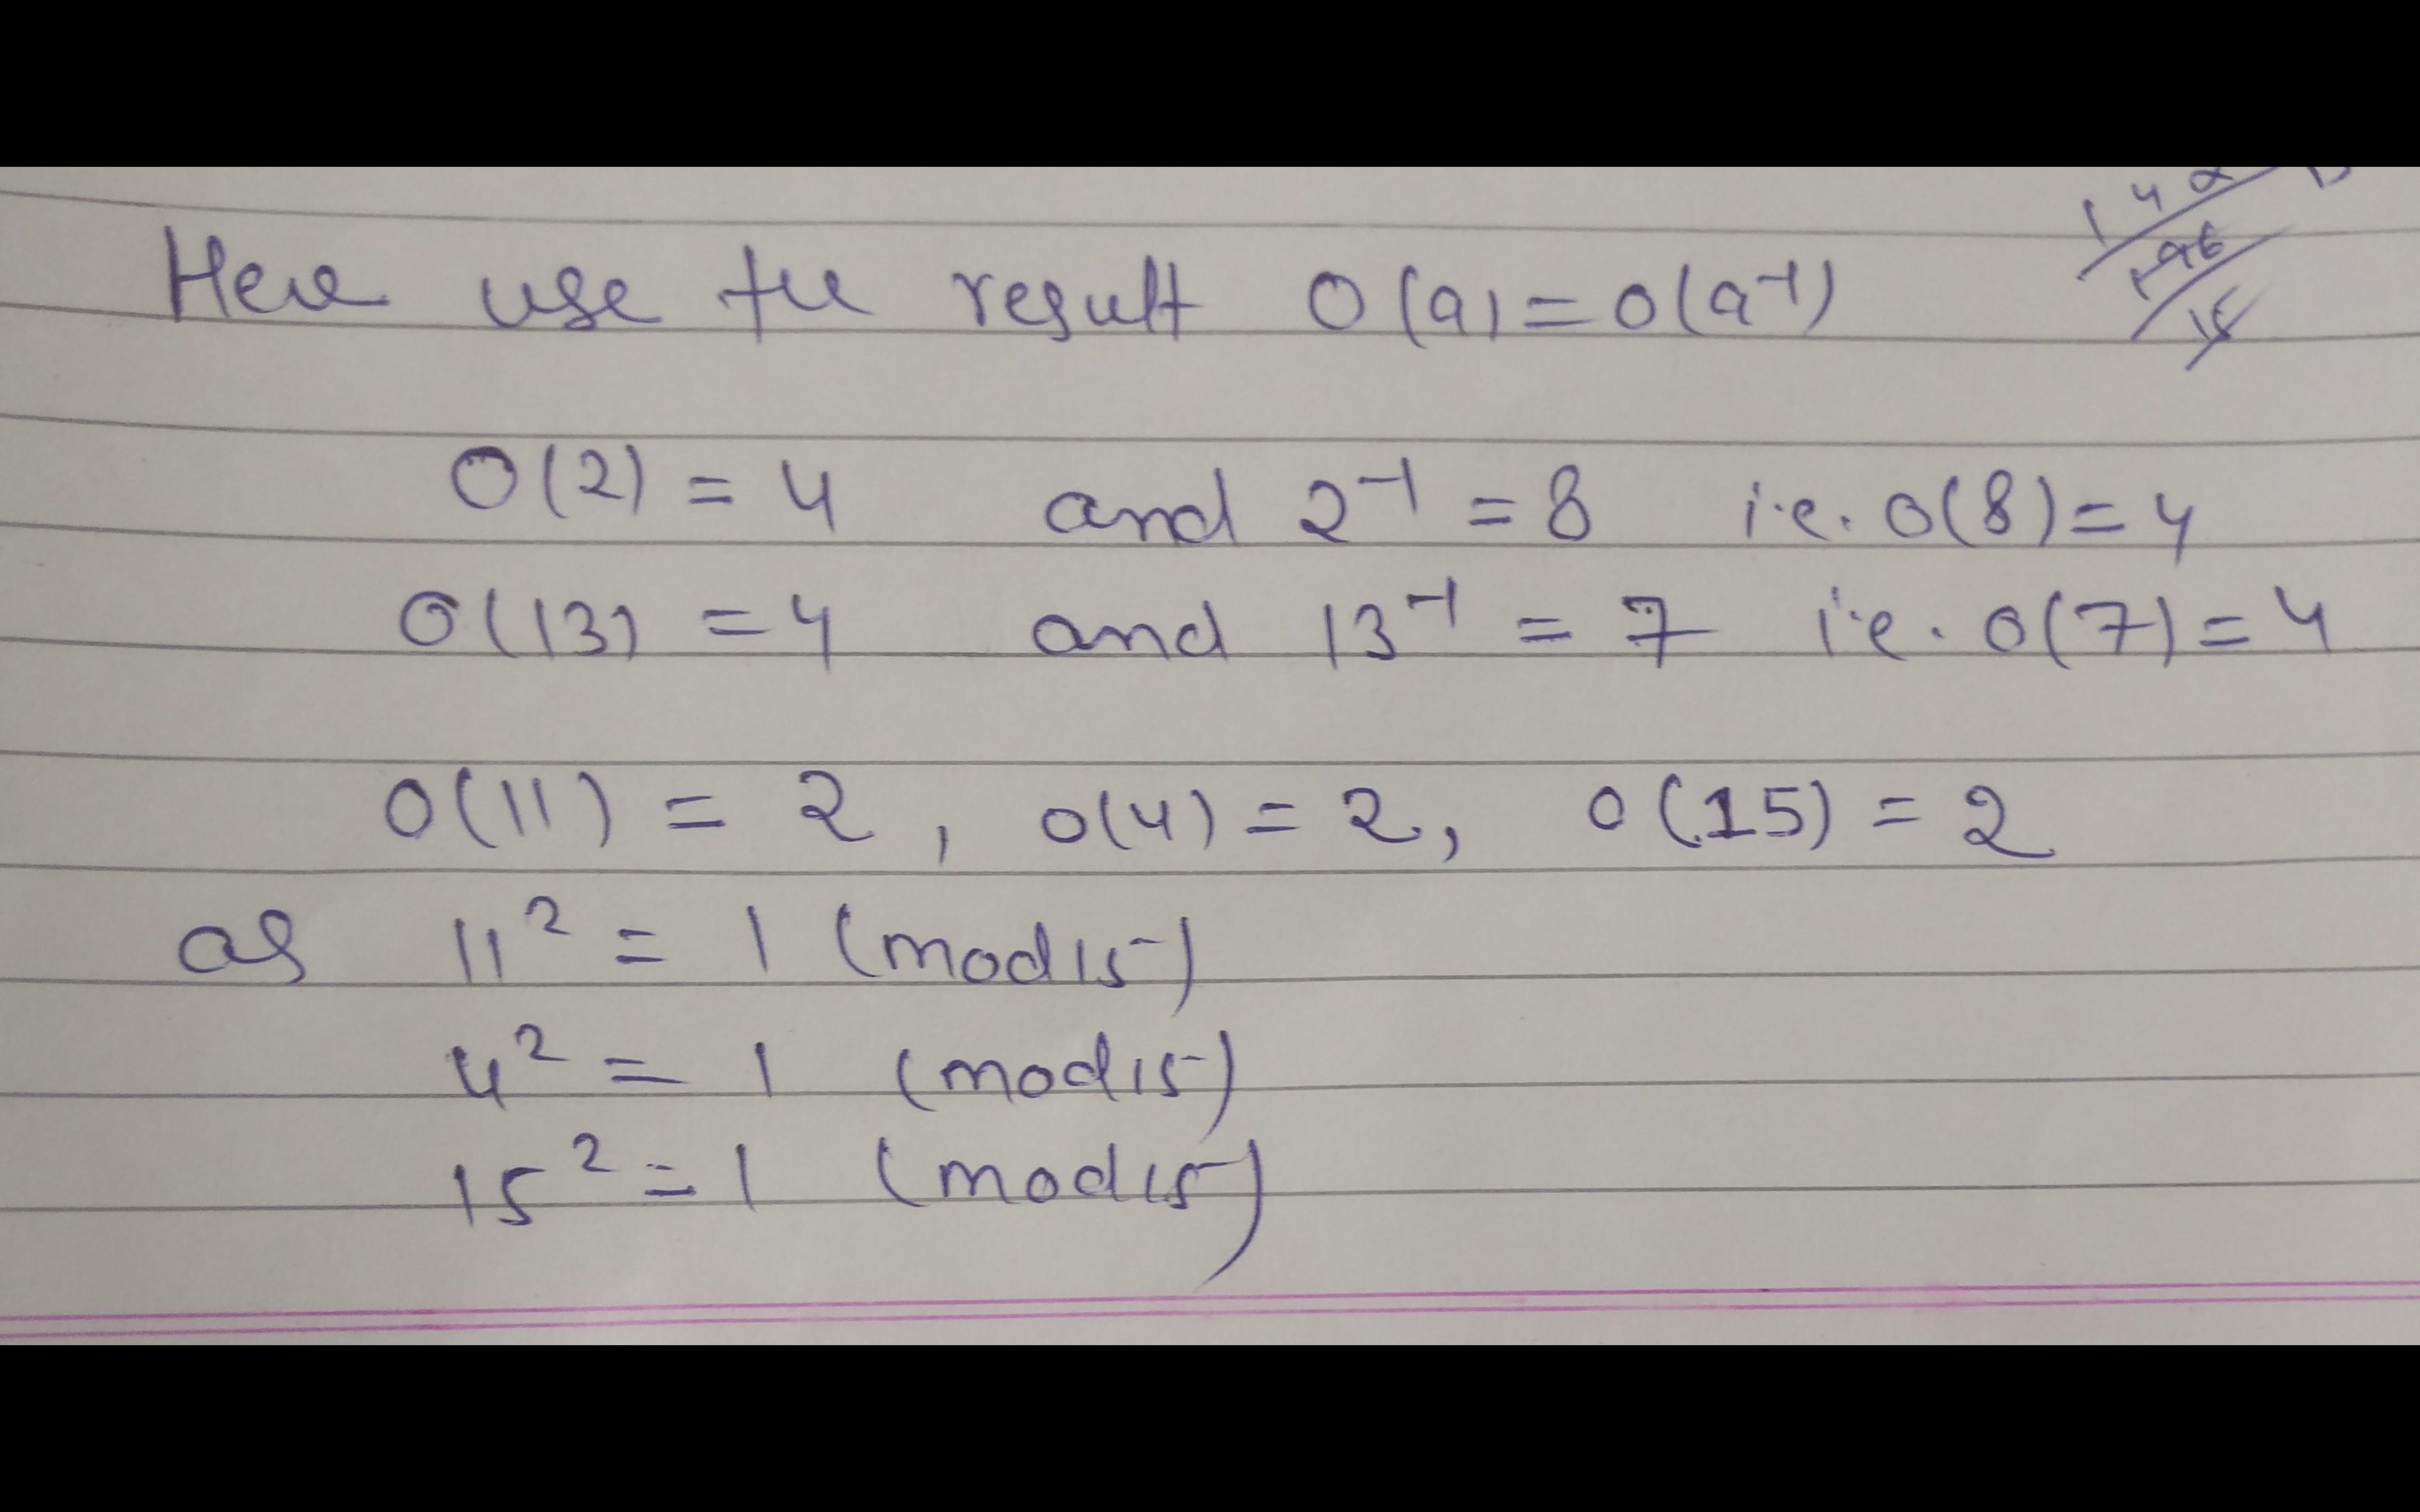 Here use the result O(a) = O(a⁻¹)
O(2) = 4 and 2⁻¹ = 8 i.e. O(8) = 4
O(13) = 4 and 13⁻¹ = 7 i.e. O(7) = 4
O(11) = 2, O(4) = 2, O(15) = 2
as 11² = 1 (mod 15)
4² = 1 (mod 15)
15² = 1 (mod 15)